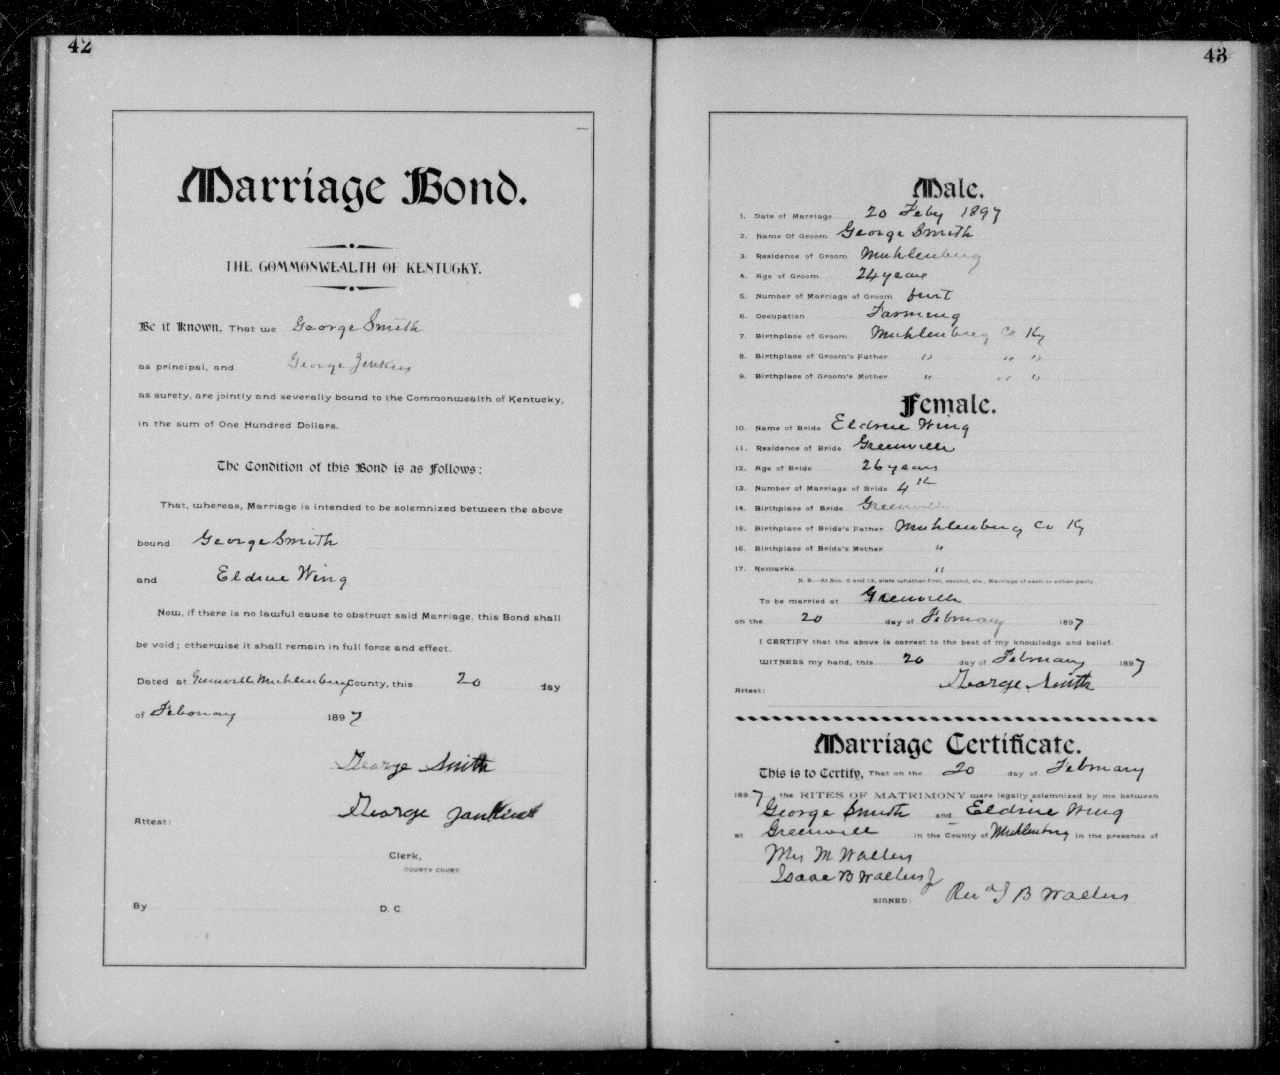 42
Marriage Bond.
THE COMMONWEALTH OF KENTUCKY.
Be it Known, That we George Smith
as principal, and George Jenkins
as surety, are jointly and severally bound to the Commonwealth of Kentucky,
in the sum of One Hundred Dollars.
The Condition of this Bond is as Follows:
That, whereas, Marriage is intended to be solemnized between the above
bound George Smith
and Eldrue Wing
Now, if there is no lawful cause to obstruct said Marriage, this Bond shall
be void; otherwise it shall remain in full force and effect.
Dated at Greenville Muhlenburg County, this 20 day
of Febonary 1897
George Smith
George Jankins
Attest:
Clerk,
COUNTY COURT.
By D. C.
43
Male.
1. Date of Marriage 20 Feby 1897
2. Name Of Groom George Smith
3. Residence of Groom Muhlenburg
4. Age of Groom 24 years
5. Number of Marriage of Groom first
6. Occupation Farming
7. Birthplace of Groom Muhlenburg Co Ky
8. Birthplace of Groom's Father " " "
9. Birthplace of Groom's Mother " " "
Female.
10. Name of Bride Eldrue Wing
11. Residence of Bride Greenville
12. Age of Bride 26 years
13. Number of Marriage of Bride 4th
14. Birthplace of Bride Greenville
15. Birthplace of Bride's Father Muhlenburg Co Ky
16. Birthplace of Bride's Mother "
17. Remarks "
N. B.—At Nos. 5 and 13, state whether first, second, etc., Marriage of each or either party.
To be married at Greenville
on the 20 day of February 1897
I CERTIFY that the above is correct to the best of my knowledge and belief.
WITNESS my hand, this 20 day of February 1897
George Smith
Attest:
Marriage Certificate.
This is to Certify, That on the 20 day of February
1897 the RITES OF MATRIMONY were legally solemnized by me between
George Smith and Eldrue Wing
at Greenvill in the County of Muhlenburg in the presence of
Mrs M Walters
Isaac B Walters Jr
SIGNED: Revd I B Walters